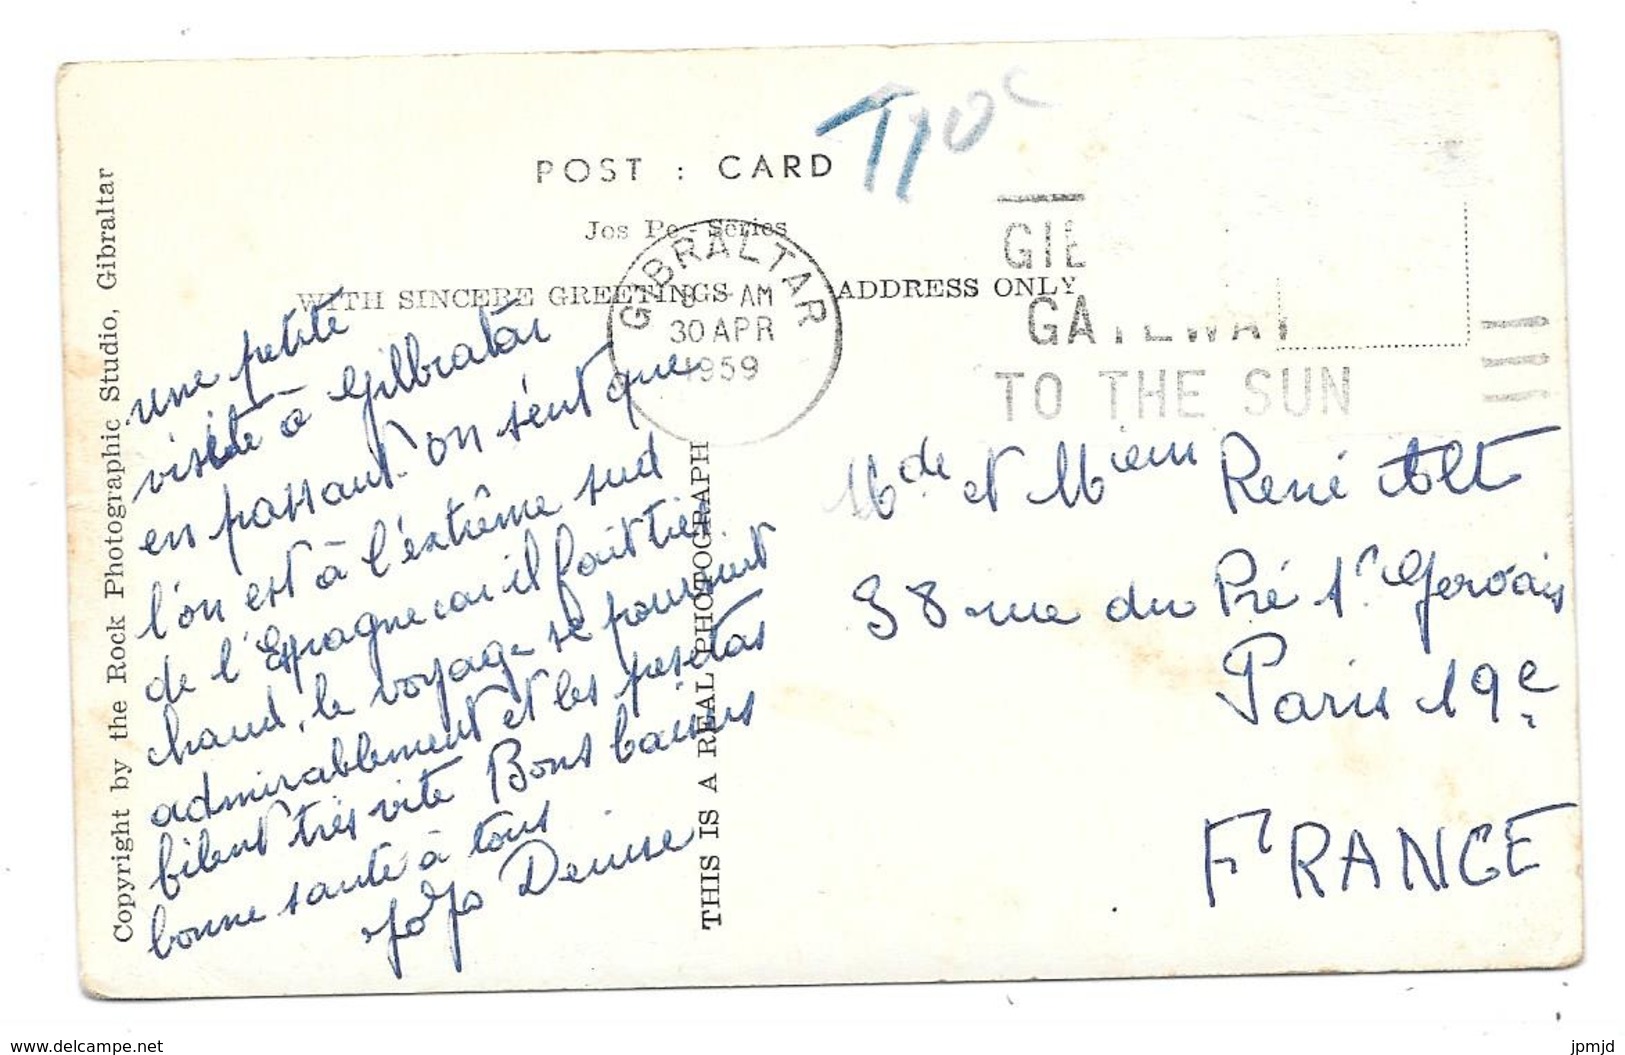 T10c
POST : CARD
Jos Pe - Series
WITH SINCERE GREETINGS
ADDRESS ONLY
GIBRALTAR
AM
30 APR
1959
GIB
GATEWAY
TO THE SUN
Copyright by the Rock Photographic Studio, Gibraltar
THIS IS A REAL PHOTOGRAPH
une petite
visite à Gilbratar
en passant on sent que
l'on est à l'extrême sud
de l'Espagne car il fait très
chaud, le voyage se poursuit
admirablement et les pesetas
filent très vite Bons baisers
bonne santé à tous
Jojo Denise
Mde et Mieur René Alt
58 rue du Pré St Gervais
Paris 19e
FRANCE
www.delcampe.net
jpmjd